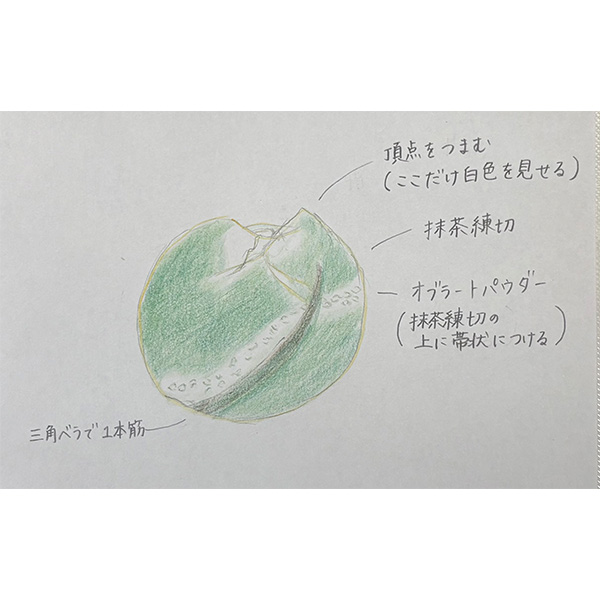 頂点をつまむ
(ここだけ白色を見せる)
抹茶練切
オブラートパウダー
(抹茶練切の
上に帯状につける)
三角ベラで1本筋